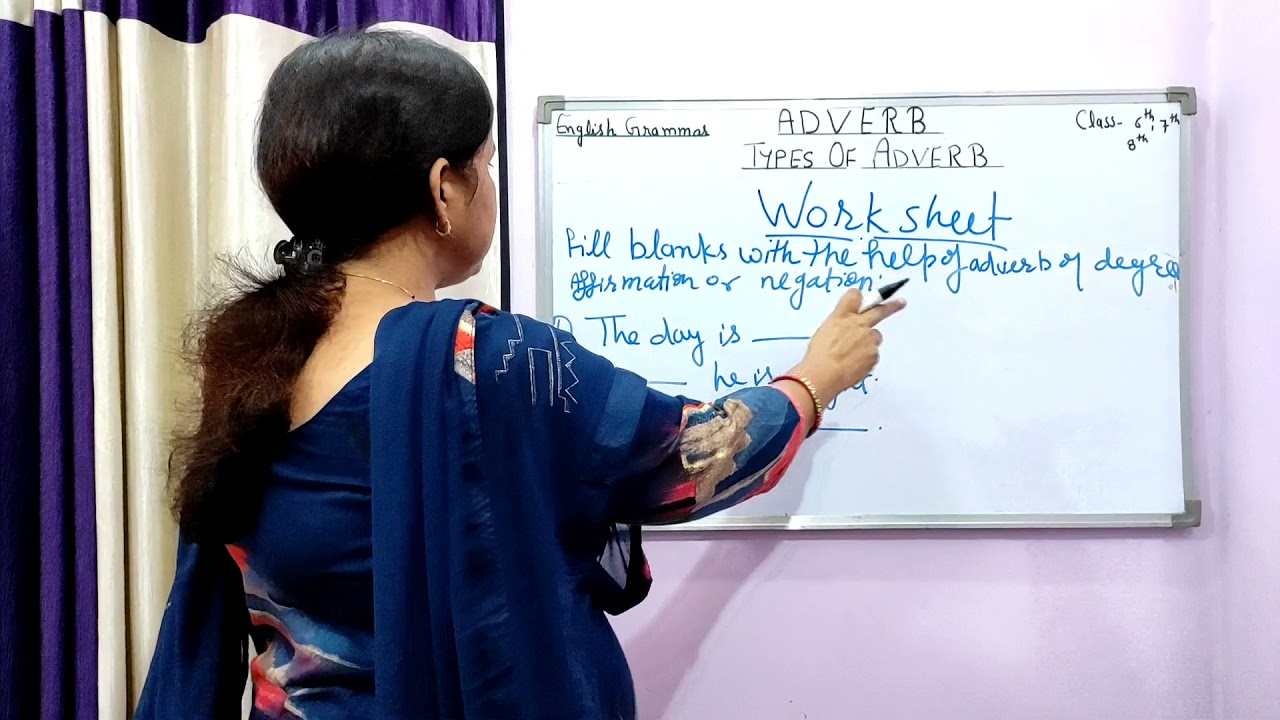 English Grammar
ADVERB
Class- 6th, 7th
8th
TYPES OF ADVERB
Worksheet
Fill blanks with the help of adverb of degree
Affirmation or negation.
The day is
he is